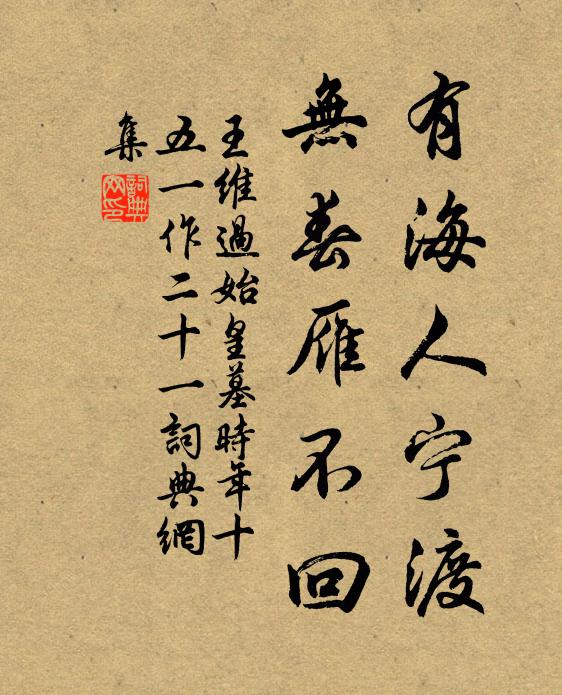 有海人宁渡
無春雁不回
王維過始皇墓時年十
五一作二十一詞典網
集
詞典
网印